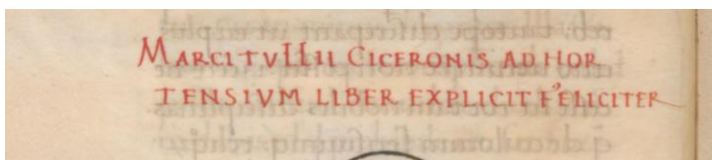 MARCI TVLLII CICERONIS AD HOR
TENSIVM LIBER EXPLICIT FELICITER